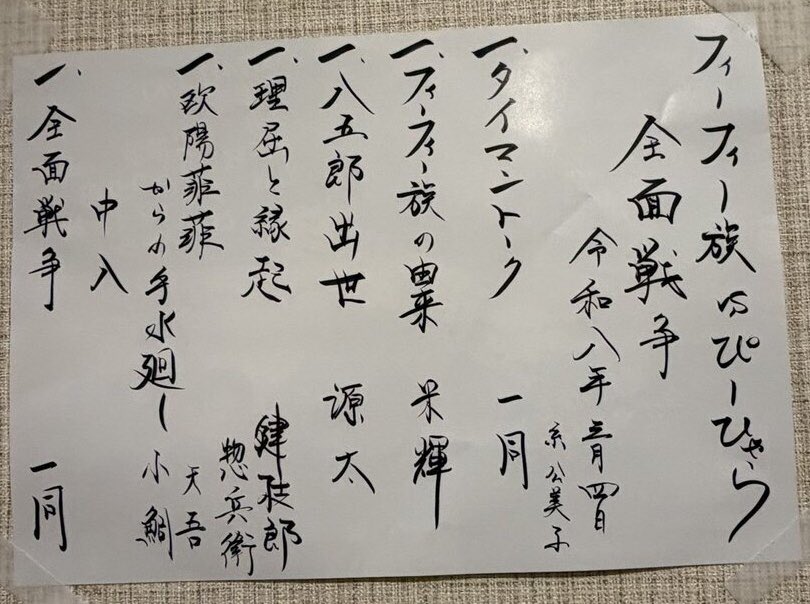 フィーフィー族 vs ぴーひゃら
全面戦争
令和八年 三月 四日
糸 公美子
一、タイマントーク 一同
一、フィーフィー族の由来 米輝
一、八五郎出世 源太
一、理屈と縁起 健枝郎
惣兵衛
一、欧陽菲菲 天吾
からの手水廻し 小鯛
中入
一、全面戦争 一同